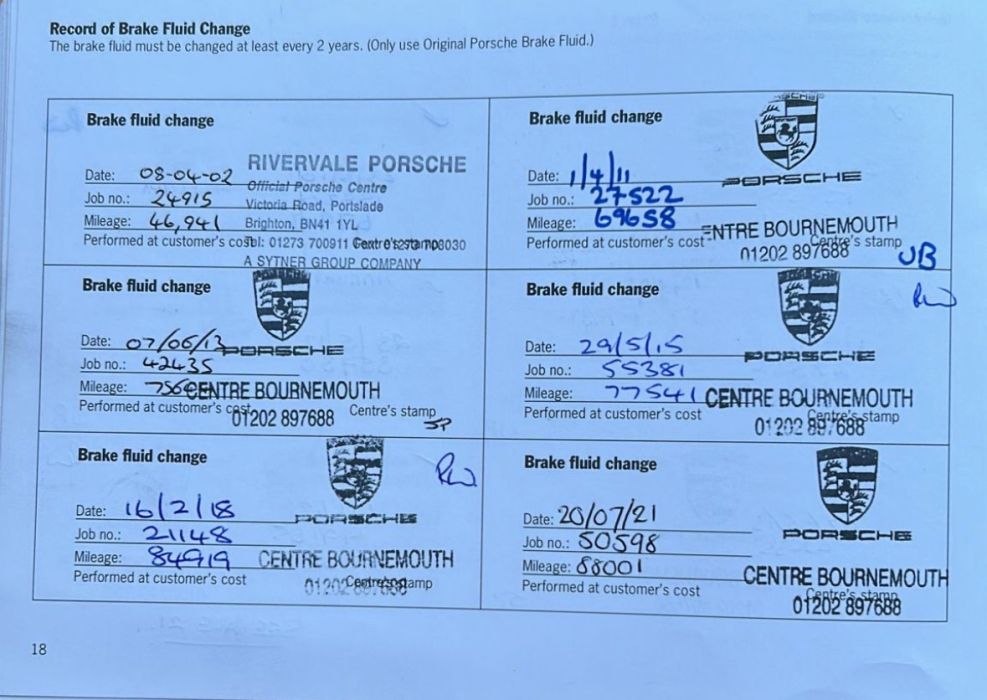 Record of Brake Fluid Change
The brake fluid must be changed at least every 2 years. (Only use Original Porsche Brake Fluid.)
Brake fluid change
RIVERVALE PORSCHE
Date: 08-04-02
Official Porsche Centre
Job no.: 24915
Victoria Road, Portslade
Mileage: 46,941
Brighton, BN41 1YL
Performed at customer's cost
Tel: 01273 700911
Centre's stamp
A SYTNER GROUP COMPANY
Brake fluid change
PORSCHE
Date: 1/4/11
Job no.: 27522
Mileage: 69658
Performed at customer's cost
ENTRE BOURNEMOUTH
Centre's stamp
01202 897688
Brake fluid change
Date: 07/06/13
PORSCHE
Job no.: 42435
Mileage:
CENTRE BOURNEMOUTH
Performed at customer's cost
01202 897688
Centre's stamp
Brake fluid change
Date: 29/5/15
PORSCHE
Job no.: 55381
Mileage: 77541
CENTRE BOURNEMOUTH
Performed at customer's cost
Centre's stamp
01202 897688
Brake fluid change
Date: 16/2/18
PORSCHE
Job no.: 21148
Mileage: 84919
CENTRE BOURNEMOUTH
Performed at customer's cost
Centre's stamp
01202 897688
Brake fluid change
Date: 20/07/21
PORSCHE
Job no.: 50598
Mileage: 88001
CENTRE BOURNEMOUTH
Performed at customer's cost
Centre's stamp
01202 897688
18